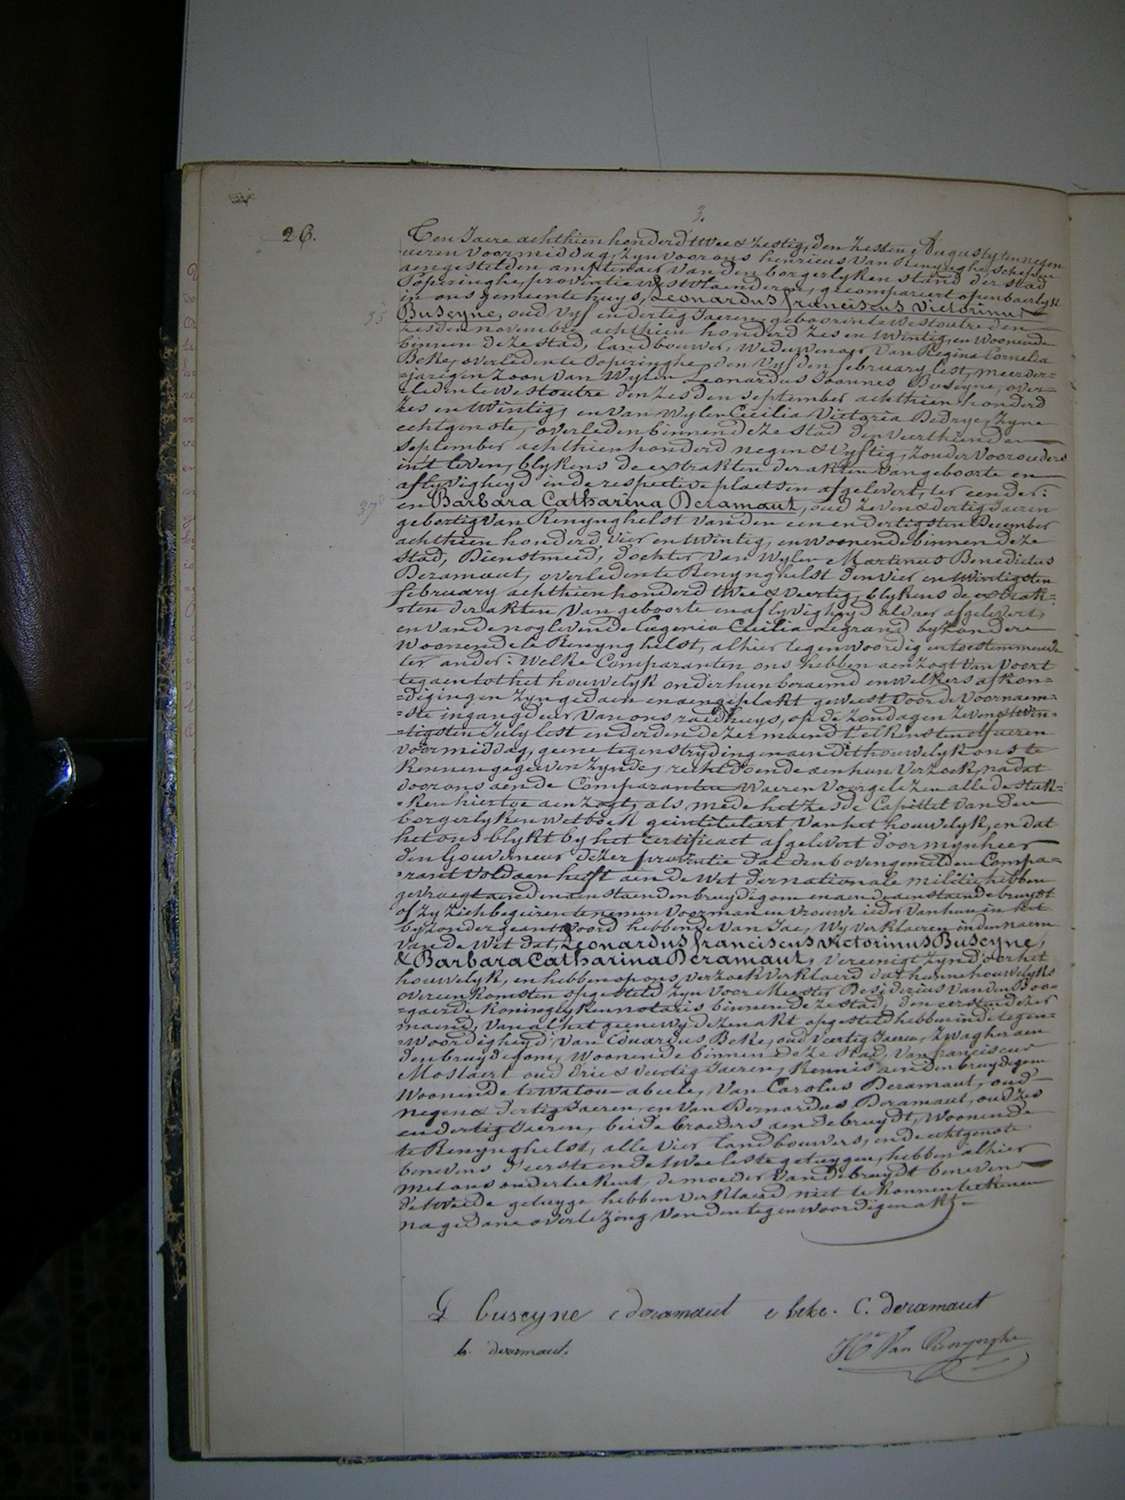 3.
26.
Ten Jaere achthien honderd twee & zestig, den zesden Augusty ten negen
ueren voormiddag, zyn voor ons henricus Van Renynghe, schepen
aengestelden amptenaer van den borgerlyken stand der stad
Poperinghe, provintie West Vlaenderen, gecompareert openbaerlyk
in ons gemeentehuys, Leonardus franciscus Victorinus
35 Buseyne, oud vyf en dertig Jaeren, geboren te Westoutre den
zesden november achthien honderd zes en twintig, en woonende
binnen deze stad, landbouwer, Weduwenaer van Regina Cornelia
Beke, overleden te Poperinghe den vyfden february lest, meerder=
=jarigen zoon van wylen Leonardus Joannes Buseyne, over=
=leden te Westoutre den zesden september achthien honderd
zes en twintig, en van wylen Cecilia Victoria Bedryc, zyne
echtgenote, overleden binnen deze stad den veerthienden
september achthien honderd negen & vyftig, zonder voorouders
in't leven, blykens de extrakten der akten van geboorte en
aflyvigheyd in de respective plaetsen afgelevert, ter eender:
37 en Barbara Catharina Deramaut, oud zeven & dertig Jaeren
geboortig van Renynghelst van den een en dertigsten December
achthien honderd vier en twintig, en woonende binnen deze
stad, Dienstmeid, dochter van wylen Martinus Benedictus
Deramaut, overleden te Renynghelst den vier en twintigsten
february achthien honderd twee & veertig, blykens de extrak=
=ten der akten van geboorte en aflyvigheyd aldaer afgelevert,
en van de nog levende Eugenia Cecilia Legrand byzondere
woonende te Renynghelst, alhier tegenwoordig en toestemmende
ter ander: Welke Comparanten ons hebben aenzogt van voort
te gaen tot het houwelyk onder hun beraemd en welkers afkon=
=digingen zyn gedaen en aengeplakt geweest voor de voornaem=
=ste ingangdeur van ons raedhuys, op de zondagen zeven & twin=
=tigsten July lest en derden dezer maend telkens ten elf ueren
voormiddag, geene tegenstrydingen aen dit houwelyk ons te
kennen gegeven zynde, recht doende aen hun verzoek, nadat
door ons aen de Comparanten waeren voorgelezen alle de stuk=
=ken hiertoe aenzogt, als mede het zesde Capittel van den
borgerlyken wetboek geintituleert van het houwelyk, en dat
het ons blykt by het certificaet afgelevert door mynheer
den Gouverneur dezer provintie dat den bovengemelden Compa=
=rant voldaen heeft aen de wet der nationale militie hebben
gevraegt aen den aenstaenden bruydegom en aen de aenstaende bruydt
of zy zich begeiren te nemen voor man en vrouwe ieder van hun in het
byzonder geantwoord hebbende van Jae, Wy verklaeren in den naem
van de Wet dat, Leonardus franciscus victorinus Buseyne,
& Barbara Catharina Deramaut, vereenigt zyn door het
houwelyk, en hebben op ons verzoek verklaerd dat hunne houwelyks
overeenkomsten opgesteld zyn voor Meester Desiderius Van den Boo=
=gaerde Koninglyken notaris binnen deze stad, den eersten dezer
maend, van al het geene wy dezen akt opgesteld hebben in de tegen=
=woordigheyd, van Eduardus Beke, oud veertig Jaeren, zwagher aen
den bruydegom, woonende binnen deze stad, van franciscus
Mostaert oud drie & veertig Jaeren, kennis aen den bruydegom
woonende te Watou-abeele, van Carolus Deramaut, oud
negen & dertig Jaeren, en van Bernardus Deramaut, oud zes
en dertig Jaeren, beide broeders aen de bruydt, woonende
te Renynghelst, alle vier landbouwers, en de echtgenote
benevens d'eerste en de twee leste getuygen, hebben alhier
met ons onderteekent, de moeder van de bruydt beneven
de tweede getuyge hebben verklaerd niet te konnen teekenen
na gedane overlezing van den tegenwoordigen akt.-
L buseyne c deramaut e beke. C. deramaut
b. deramaut.
Hri Van Renynghe